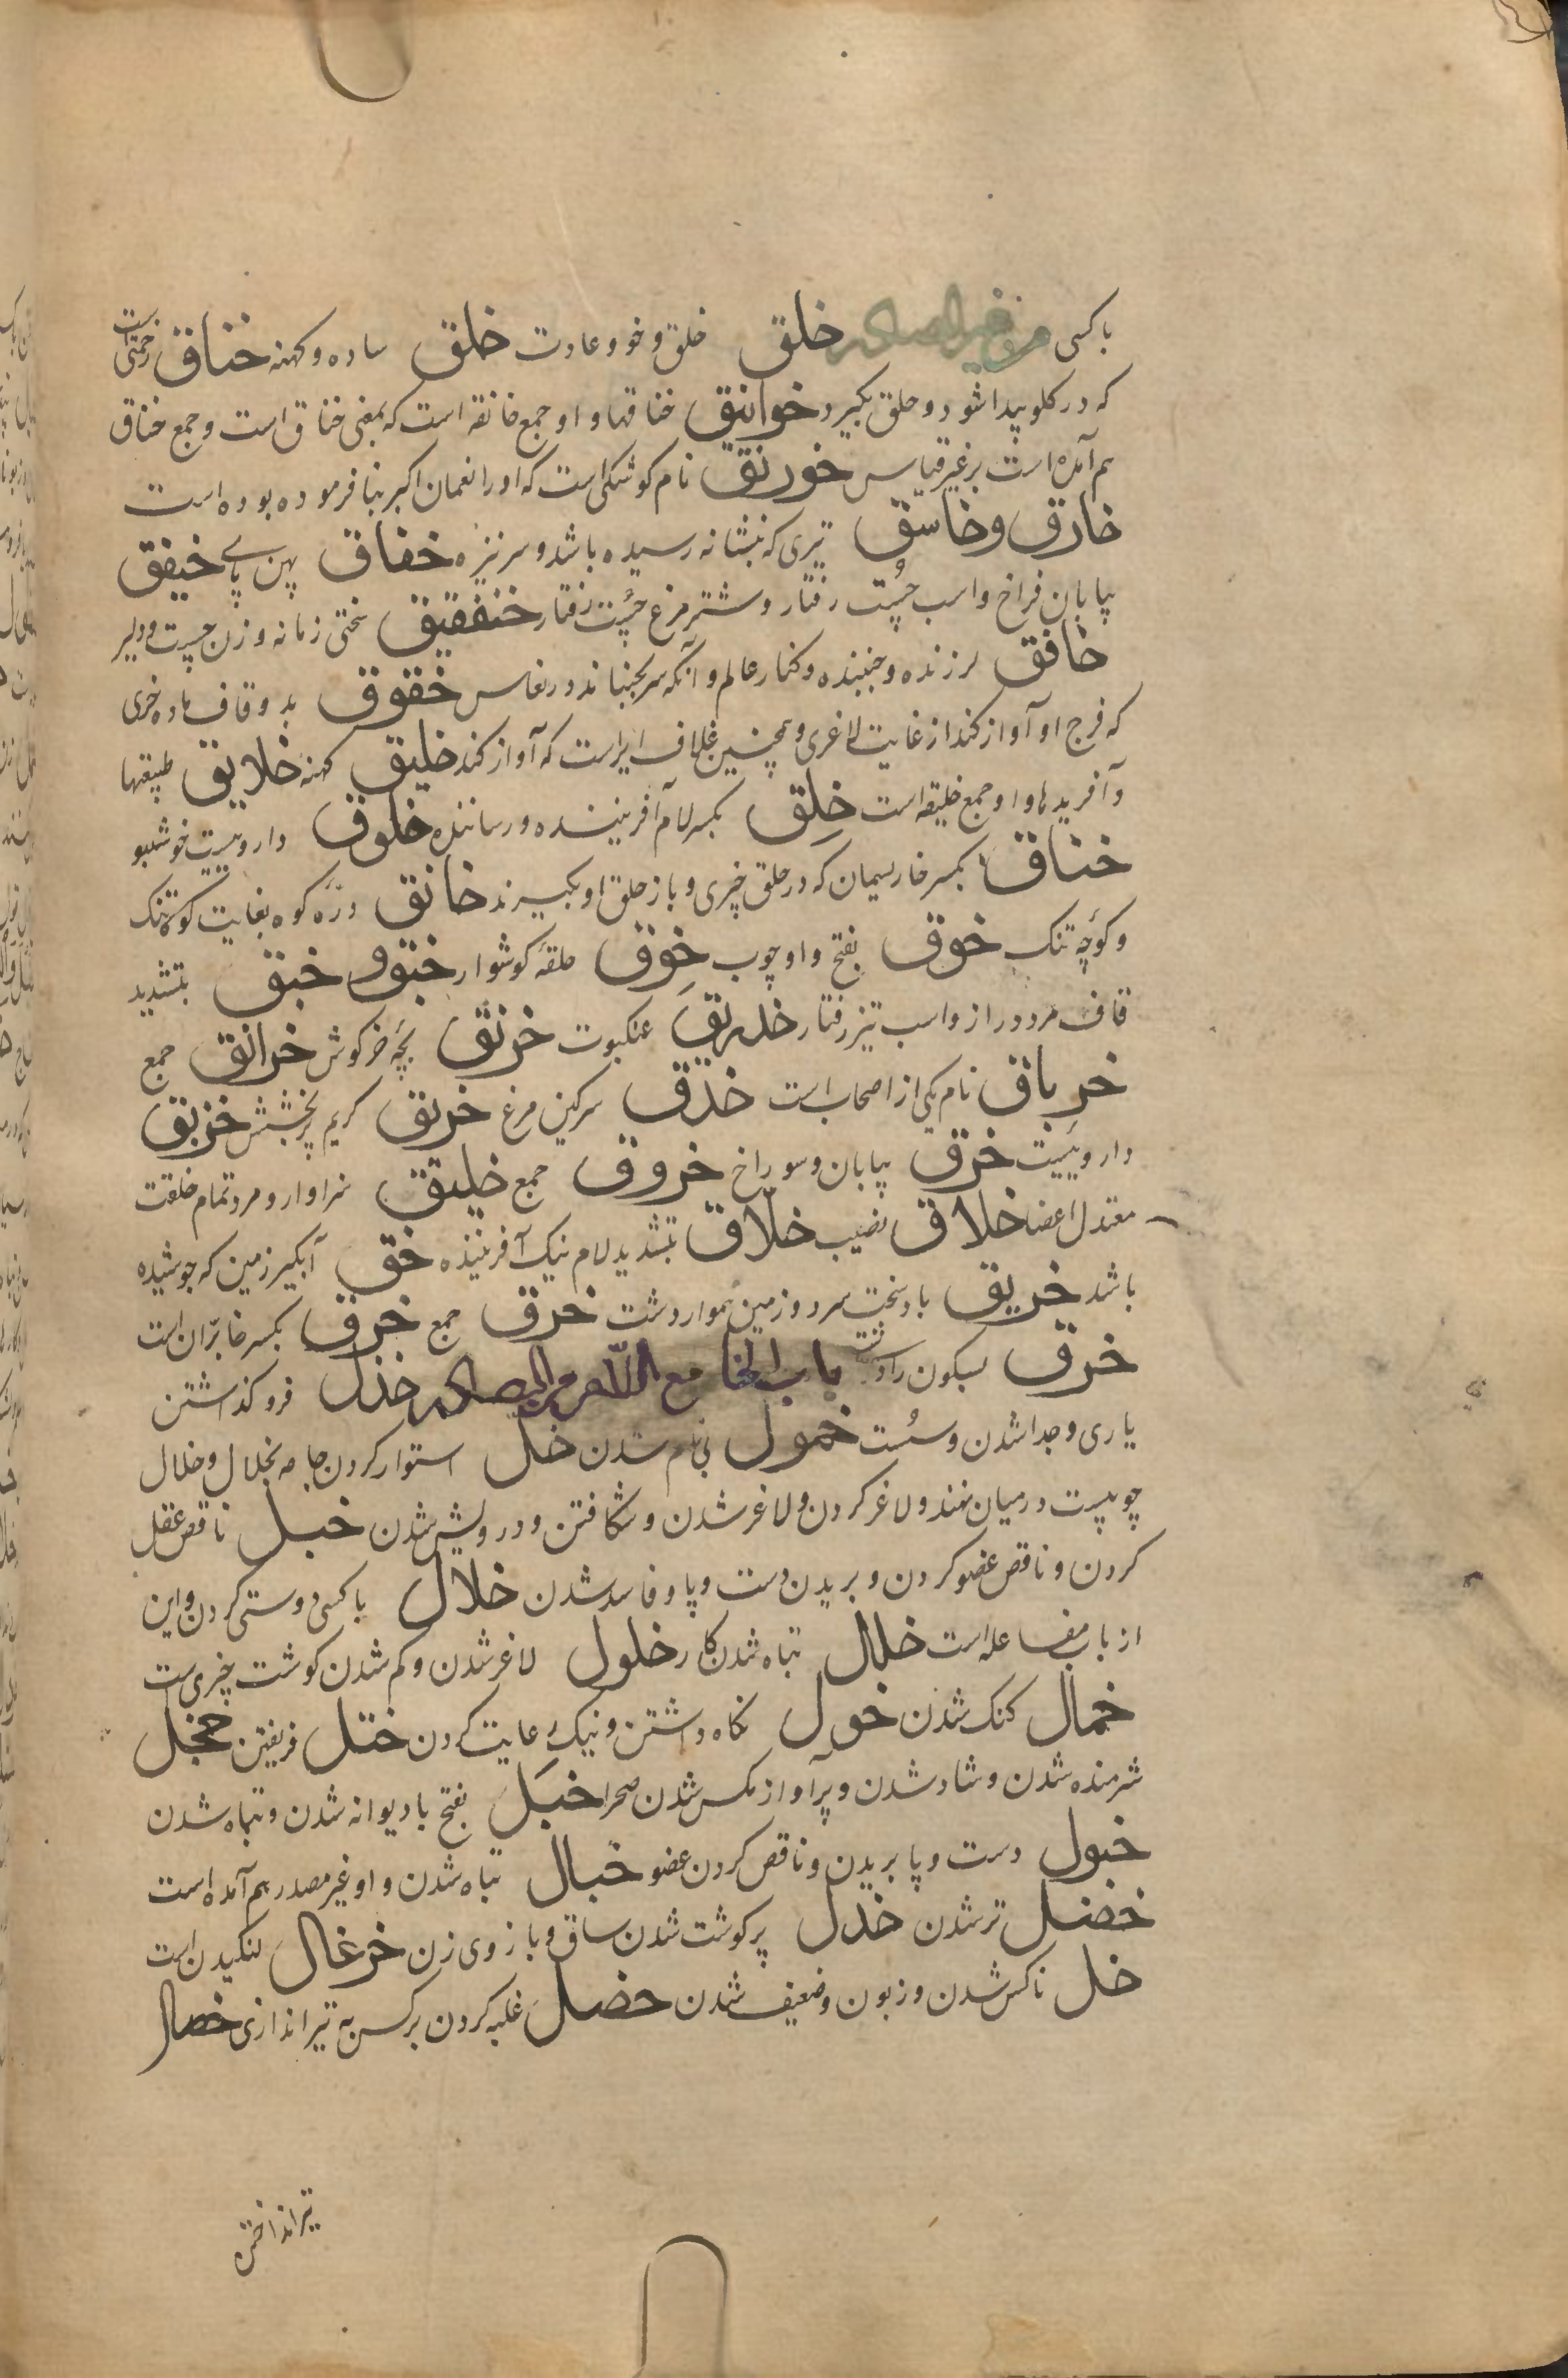 باکسی من غیر المصادر خلق خلق و خو و عادت خلق ساده و کهنه خناق زحمتی است
که در کلو پیدا شود و حلق بکیرد خوانیق خناقها و او جمع خانقه است که بمعنی خناق است و جمع خناق
هم آمده است بر غیر قیاس خورنق نام کوشکی است که او را نعمان اکبر بنا فرموده بوده است
خارق و خاسق تیری که بنشانه رسیده باشد و سر نیزه خفاق پهن پای خیفق
بیابان فراخ و اسب چُست رفتار و شتر مرغ چُست رفتار خنفقیق سختی زمانه و زن چست و دلیر
خافق لرزنده و جنبنده و کنار عالم و آنکه سر بجنباند در نعاس خقوق بدو قاف ماده خری
که فرج او آواز کند از غایت لاغری و همچنین غلاف ایر است که آواز کند خلیق کهنه خلایق طبیعتها
و آفریدها و او جمع خلیقه است خلِق بکسر لام آفریننده و رساننده خلوق دارویست خوشبو
خناق بکسر خا ریسمان که در حلق چیزی و باز حلق او بکیرند خانق درّه کوه بغایت کوته تنک
و کوچه تنک خوق بفتح واو چوب خوق حلقهٔ کوشوار خبق و خبق بتشدید
قاف مرد دراز و اسب تیز رفتار خدریق عنکبوت خرنق بچه خرکوش خرانق جمع
خرباق نام یکی از اصحاب است خذق سرکین مرغ خریق کریم پر بخشش خربق
داروییست خرق بیابان و سوراخ خروق جمع خلیق سزاوار و مرد تمام خلقت
معتدل اعضا خلاق نصیب خلّاق بتشدید لام نیک آفریننده خق آبکیر زمین که جوشیده
باشد خریق باد سخت سرد و زمین هموار دشت خرق جمع خرق بکسر خا برّان است
خرق بسکون را دشت باب الخا مع اللام من المصادر خذل فرو کذاشتن
یاری و جدا شدن و سُست خمول بی نام شدن خل استوار کردن جامه بخلال و خلال
چوبیست در میان نهند و لاغر کردن و لاغر شدن و شکافتن و درویش شدن خبل ناقص عقل
کردن و ناقص عضو کردن و بریدن دست و پا و فاسد شدن خلال با کسی دوستی کردن و این
از باب مفاعله است خلال تباه شدن کار خلول لاغر شدن و کم شدن کوشت چیزیست
خمال کنک شدن خول نکاه داشتن و نیک رعایت کردن ختل فریفتن خجل
شرمنده شدن و شاد شدن و پر آواز مکس شدن صحرا خبَل بفتح با دیوانه شدن و تباه شدن
خبول دست و پا بریدن و ناقص کردن عضو خبال تباه شدن و او غیر مصدر هم آمده است
خضل تر شدن خدل پر کوشت شدن ساق و بازوی زن خزعال لنکیدن است
خل ناکس شدن و زبون و ضعیف شدن خصل غلبه کردن بر کسی به تیر اندازی خصال
تیر انداختن